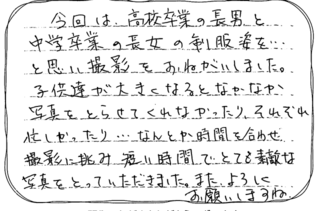 今回は、高校卒業の長男と
中学卒業の長女の制服姿を…
と思い撮影をおねがいしました。
子供達が大きくなるとなかなか
写真をとらせてくれなかったり、それぞれ
忙しかったり…なんとか時間を合わせ
撮影に挑み短い時間でとても素敵な
写真をとっていただきました。また、よろしく
お願いしますね